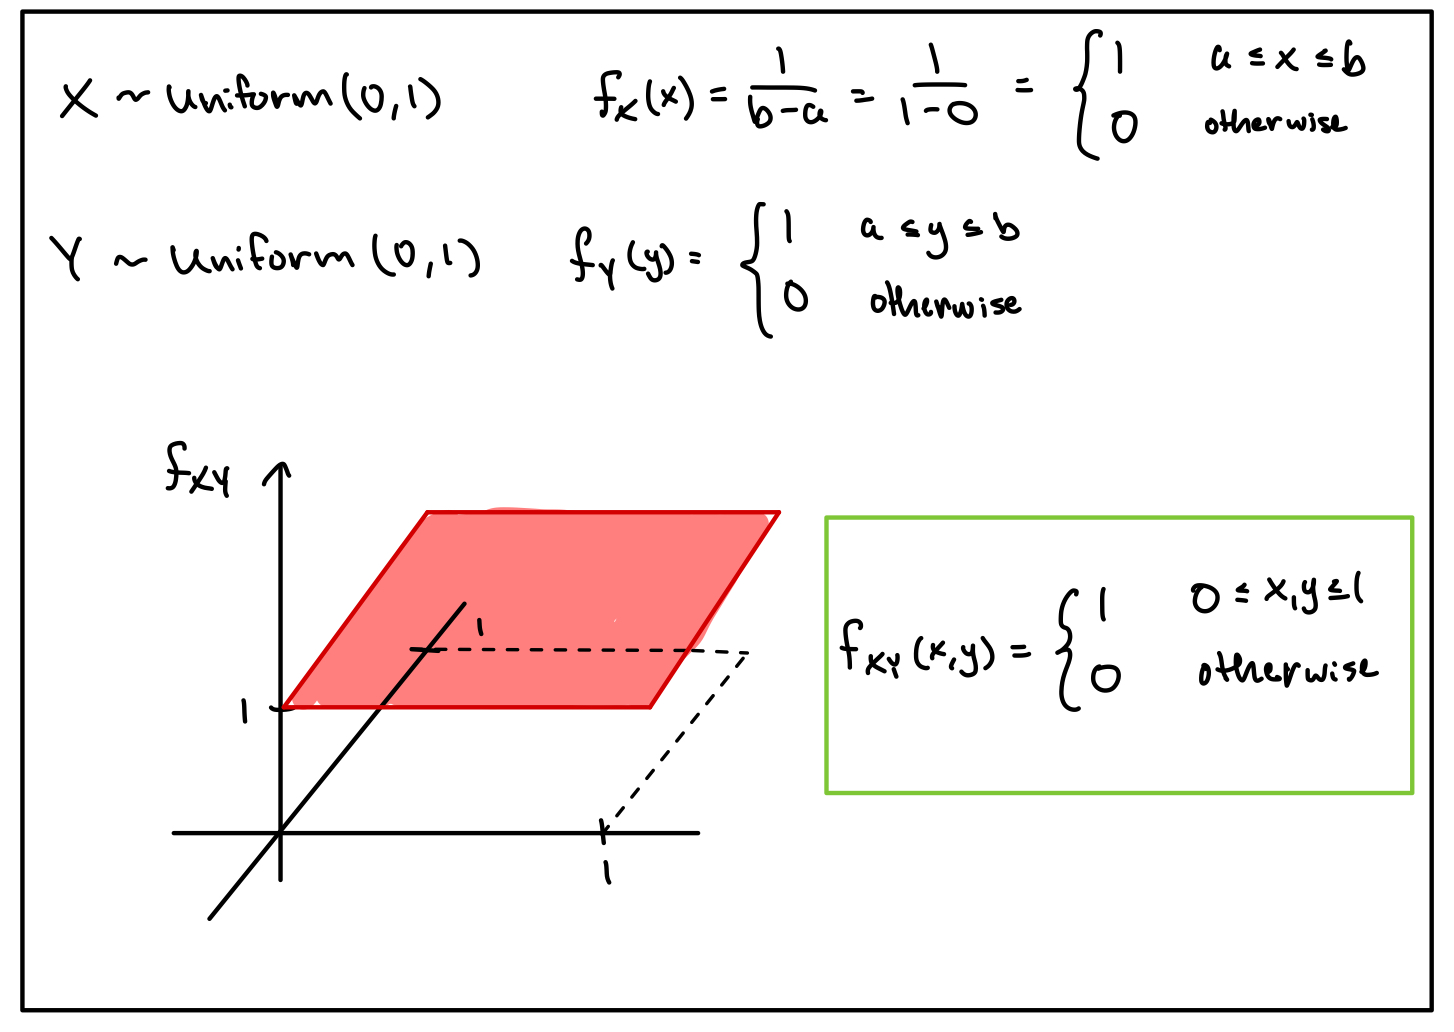 X ~ uniform(0,1) f_X(x) = 1/(b-a) = 1/(1-0) = { 1 a ≤ x ≤ b
0 otherwise
Y ~ uniform(0,1) f_Y(y) = { 1 a ≤ y ≤ b
0 otherwise
f_XY
1
1
1
f_XY(x,y) = { 1 0 ≤ x,y ≤ 1
0 otherwise